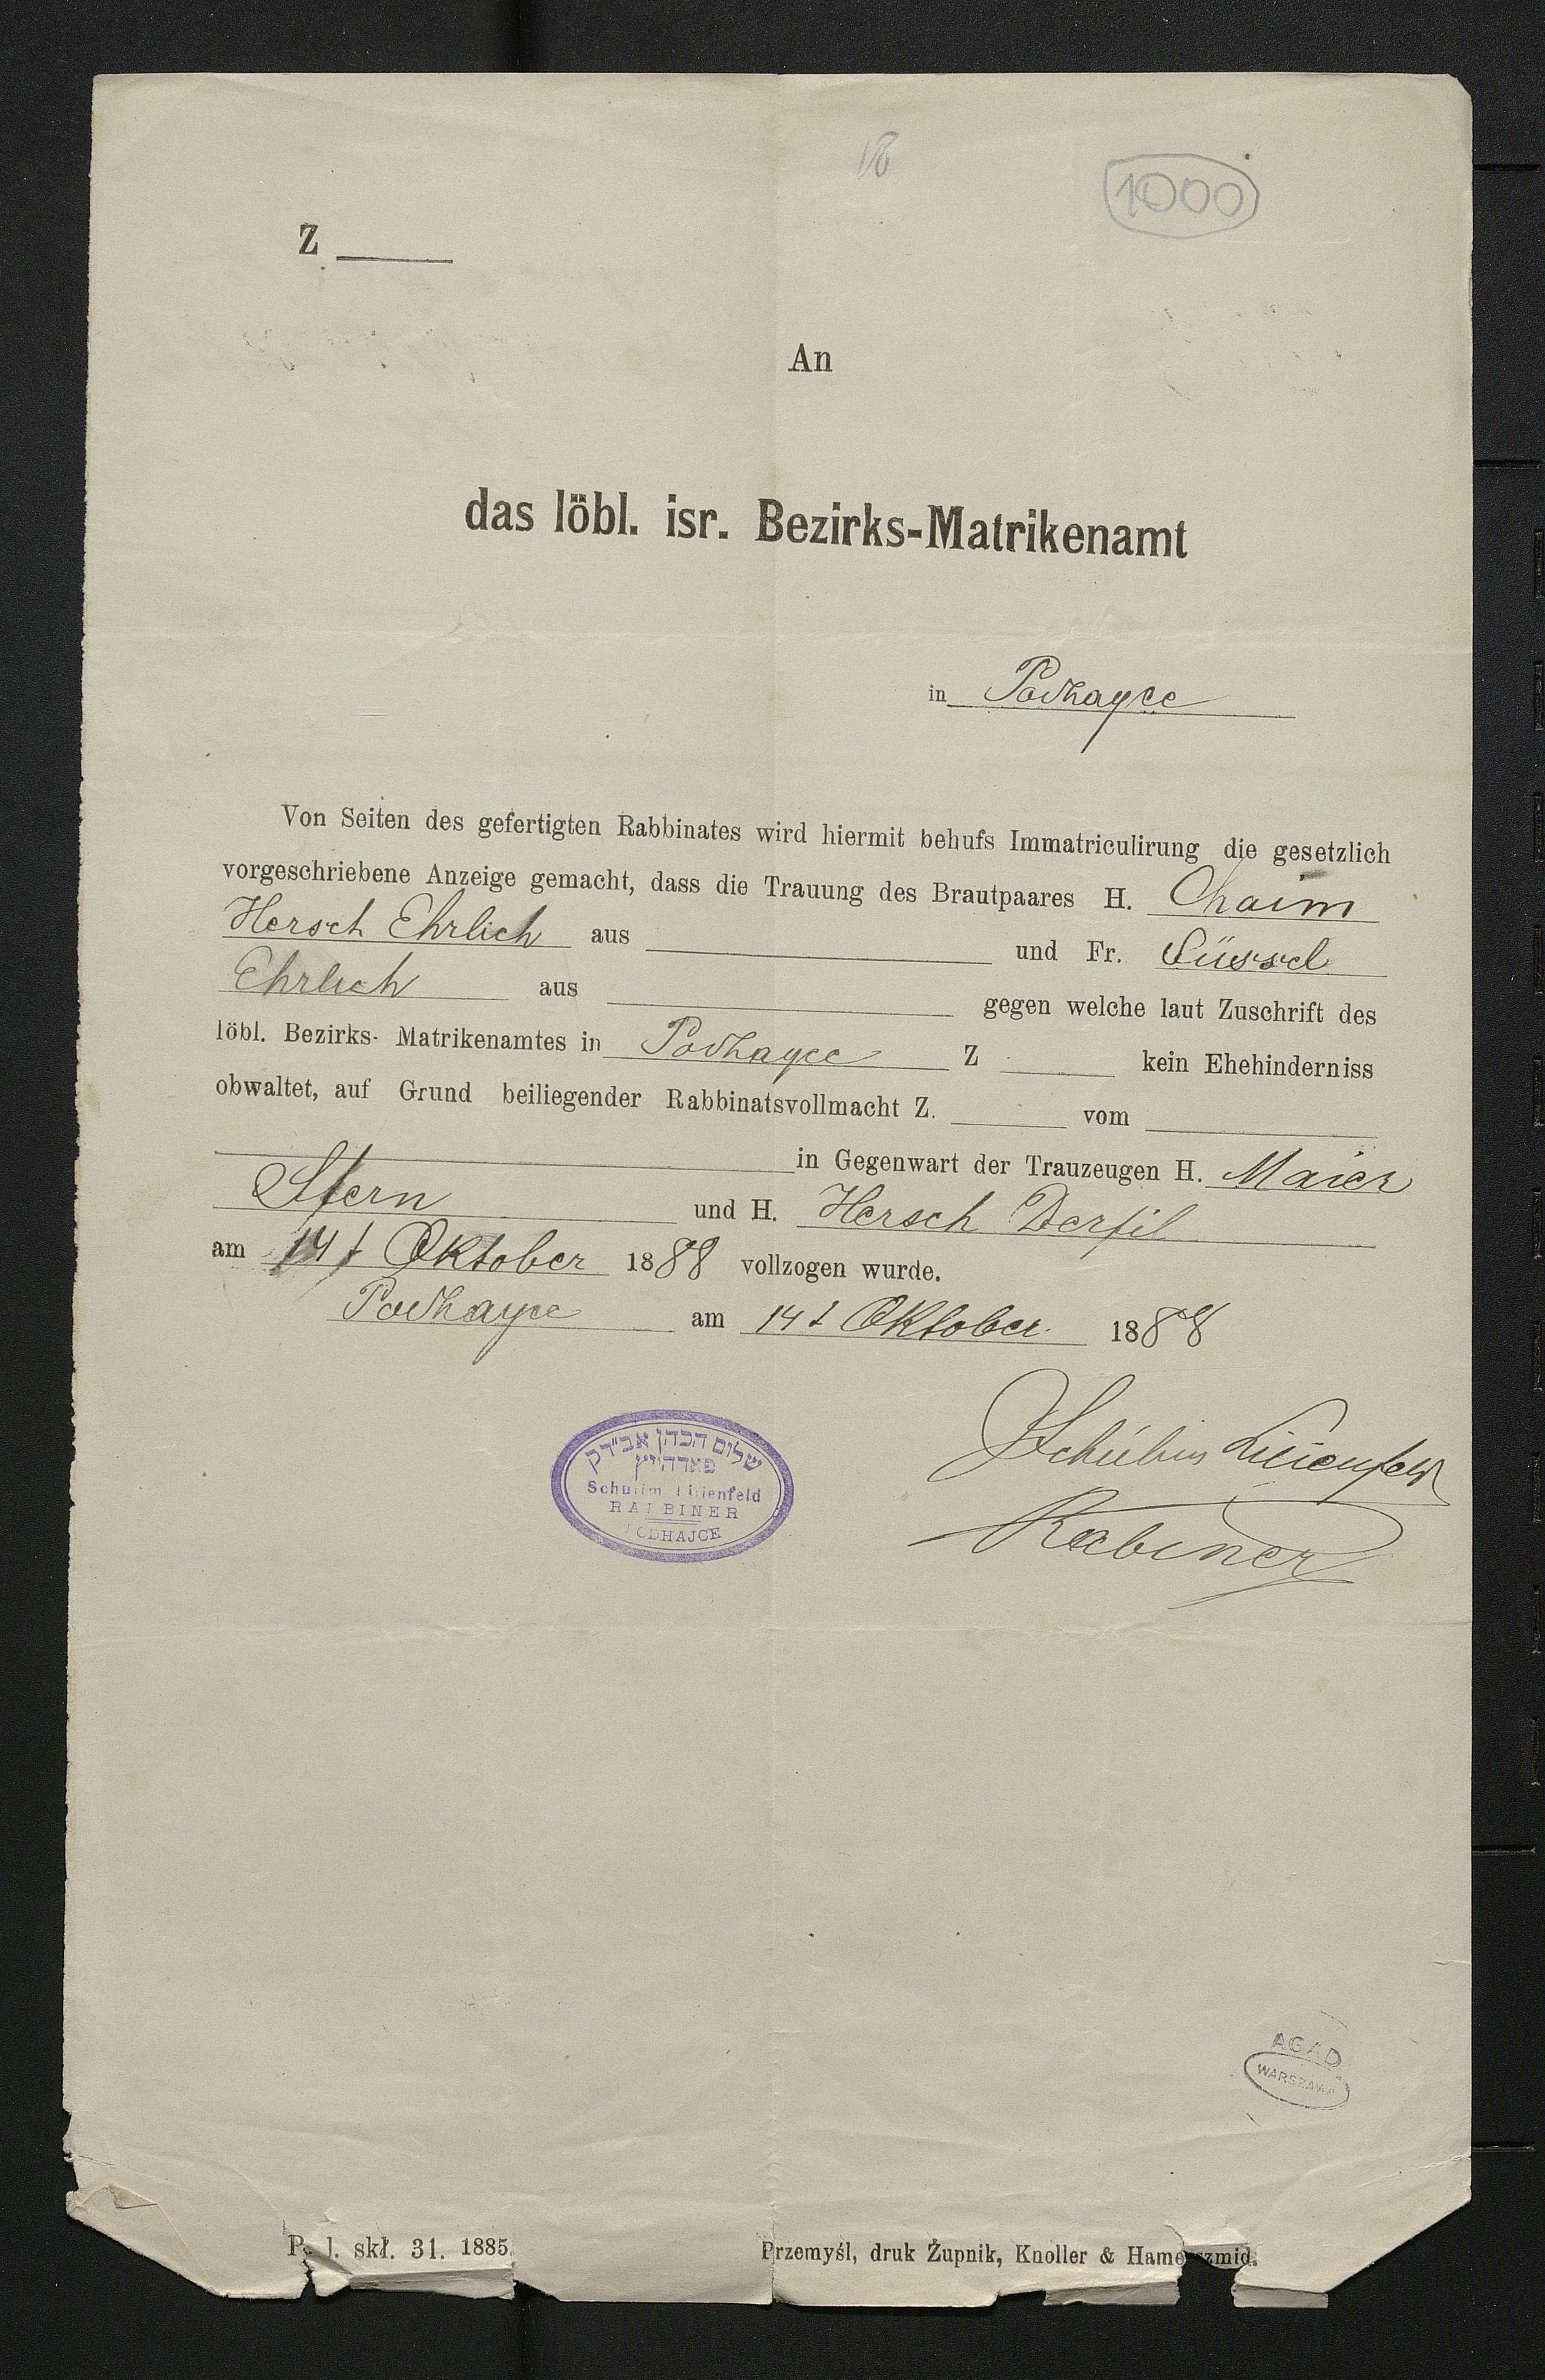 18
1000
Z
An
das löbl. isr. Bezirks-Matrikenamt
in Podhayce
Von Seiten des gefertigten Rabbinates wird hiermit behufs Immatriculirung die gesetzlich
vorgeschriebene Anzeige gemacht, dass die Trauung des Brautpaares H. Chaim
Hersch Ehrlich aus und Fr. Süssel
Ehrlich aus gegen welche laut Zuschrift des
löbl. Bezirks- Matrikenamtes in Podhayce Z kein Ehehinderniss
obwaltet, auf Grund beiliegender Rabbinatsvollmacht Z. vom
in Gegenwart der Trauzeugen H. Maier
Stern und H. Hersch
am 14t Oktober 1888 vollzogen wurde.
Podhayce am 14t Oktober 1888
שלום הכהן אב״דק
פאדהייץ
Schulim Lilienfeld
RABBINER
PODHAJCE
Lilienfeld
Rabiner
AGAD
WARSZAWA
skł. 31. 1885.
Przemyśl, druk Żupnik, Knoller & Hamerszmid.